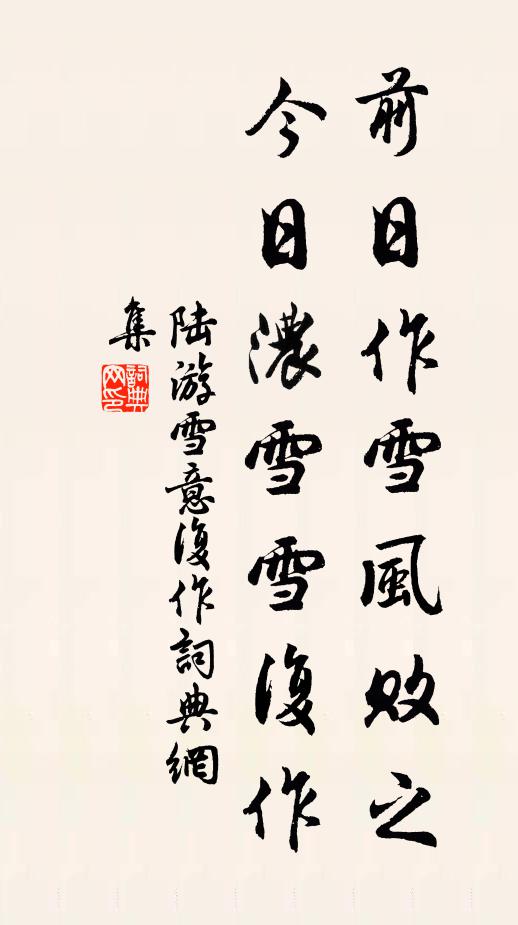 前日作雪風敗之
今日濃雪雪復作
陸游雪意復作詞典網
集
詞典
网印